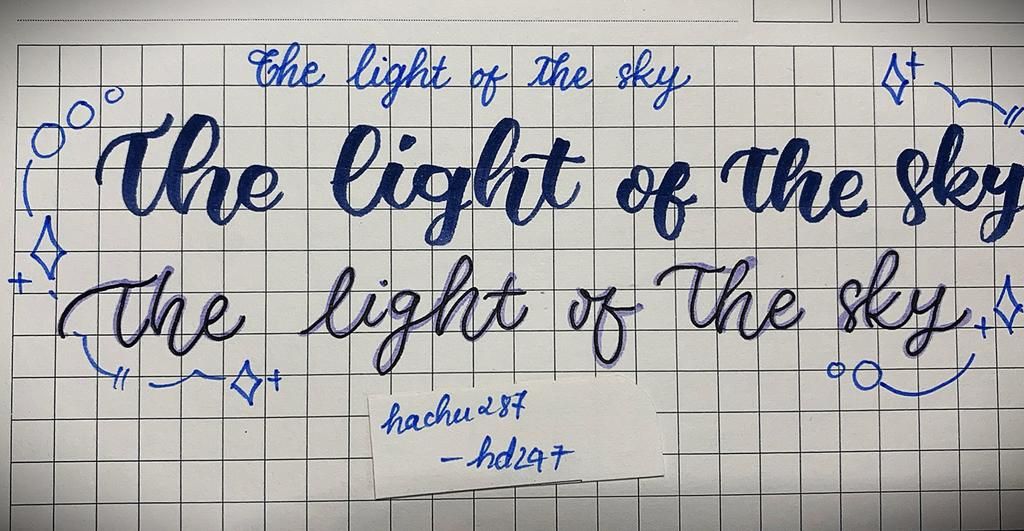 The light of the sky
The light of the sky
The light of the sky
hachu287
- hd247